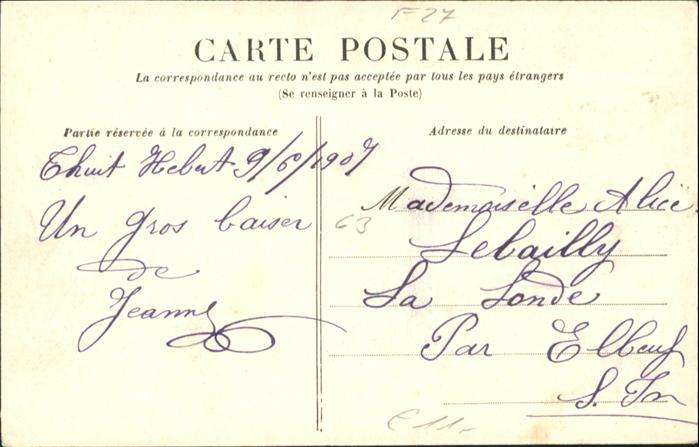 F 27
CARTE POSTALE
La correspondance au recto n'est pas acceptée par tous les pays étrangers
(Se renseigner à la Poste)
Partie réservée à la correspondance
Thuit Hebert 9/6/1907
Un gros baiser
de
Jeanne
Adresse du destinataire
63
Mademoiselle Alice
Lebailly
La Londe
Par Elbeuf
S. Inf
€ 11-